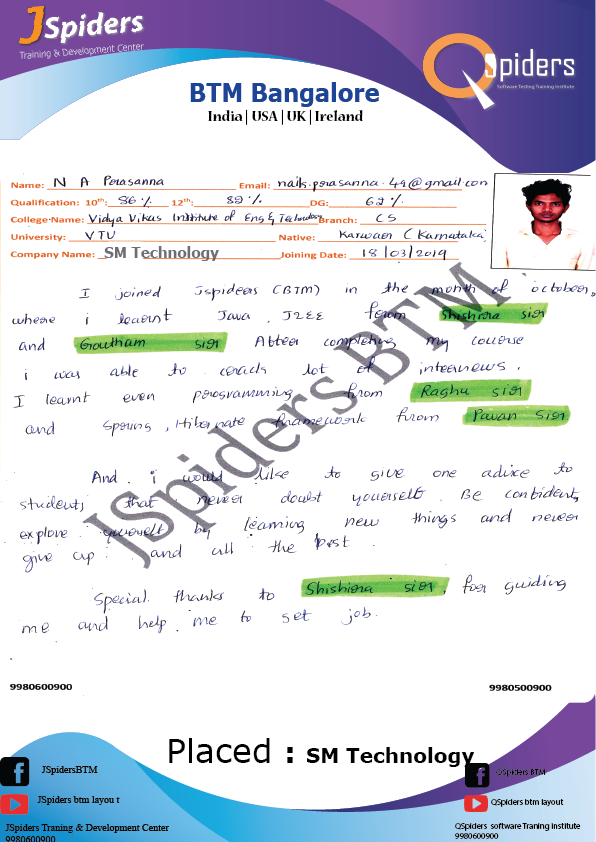 JSpiders
Training & Development Center
QSpiders
Software Testing Training Institute
BTM Bangalore
India | USA | UK | Ireland
Name: N A Perasanna Email: naik.perasanna.49@gmail.com
Qualification: 10th: 86 % 12th: 82 % DG: 62 %
College Name: Vidya Vikas Institute of Eng & Technology Branch: CS
University: VTU Native: Karwar (Karnataka)
Company Name: SM Technology Joining Date: 18/03/2019
I joined Jspiders (BTM) in the month of october,
where i learnt Java, J2EE from Shishira sir
and Goutham sir After completing my course
i was able to crack lot of interviews.
I learnt even programming from Raghu sir
and Spring, Hibernate framework from Pavan sir
And i would like to give one advice to
students that never doubt yourself. Be confident,
explore yourself by learning new things and never
give up. and all the best.
Special thanks to Shishira sir, for guiding
me and help me to get job.
JSpiders BTM
9980600900 9980500900
Placed : SM Technology
JSpidersBTM
QSpiders BTM
JSpiders btm layou t
QSpiders btm layout
JSpiders Traning & Development Center
9980600900
QSpiders software Traning institute
9980600900